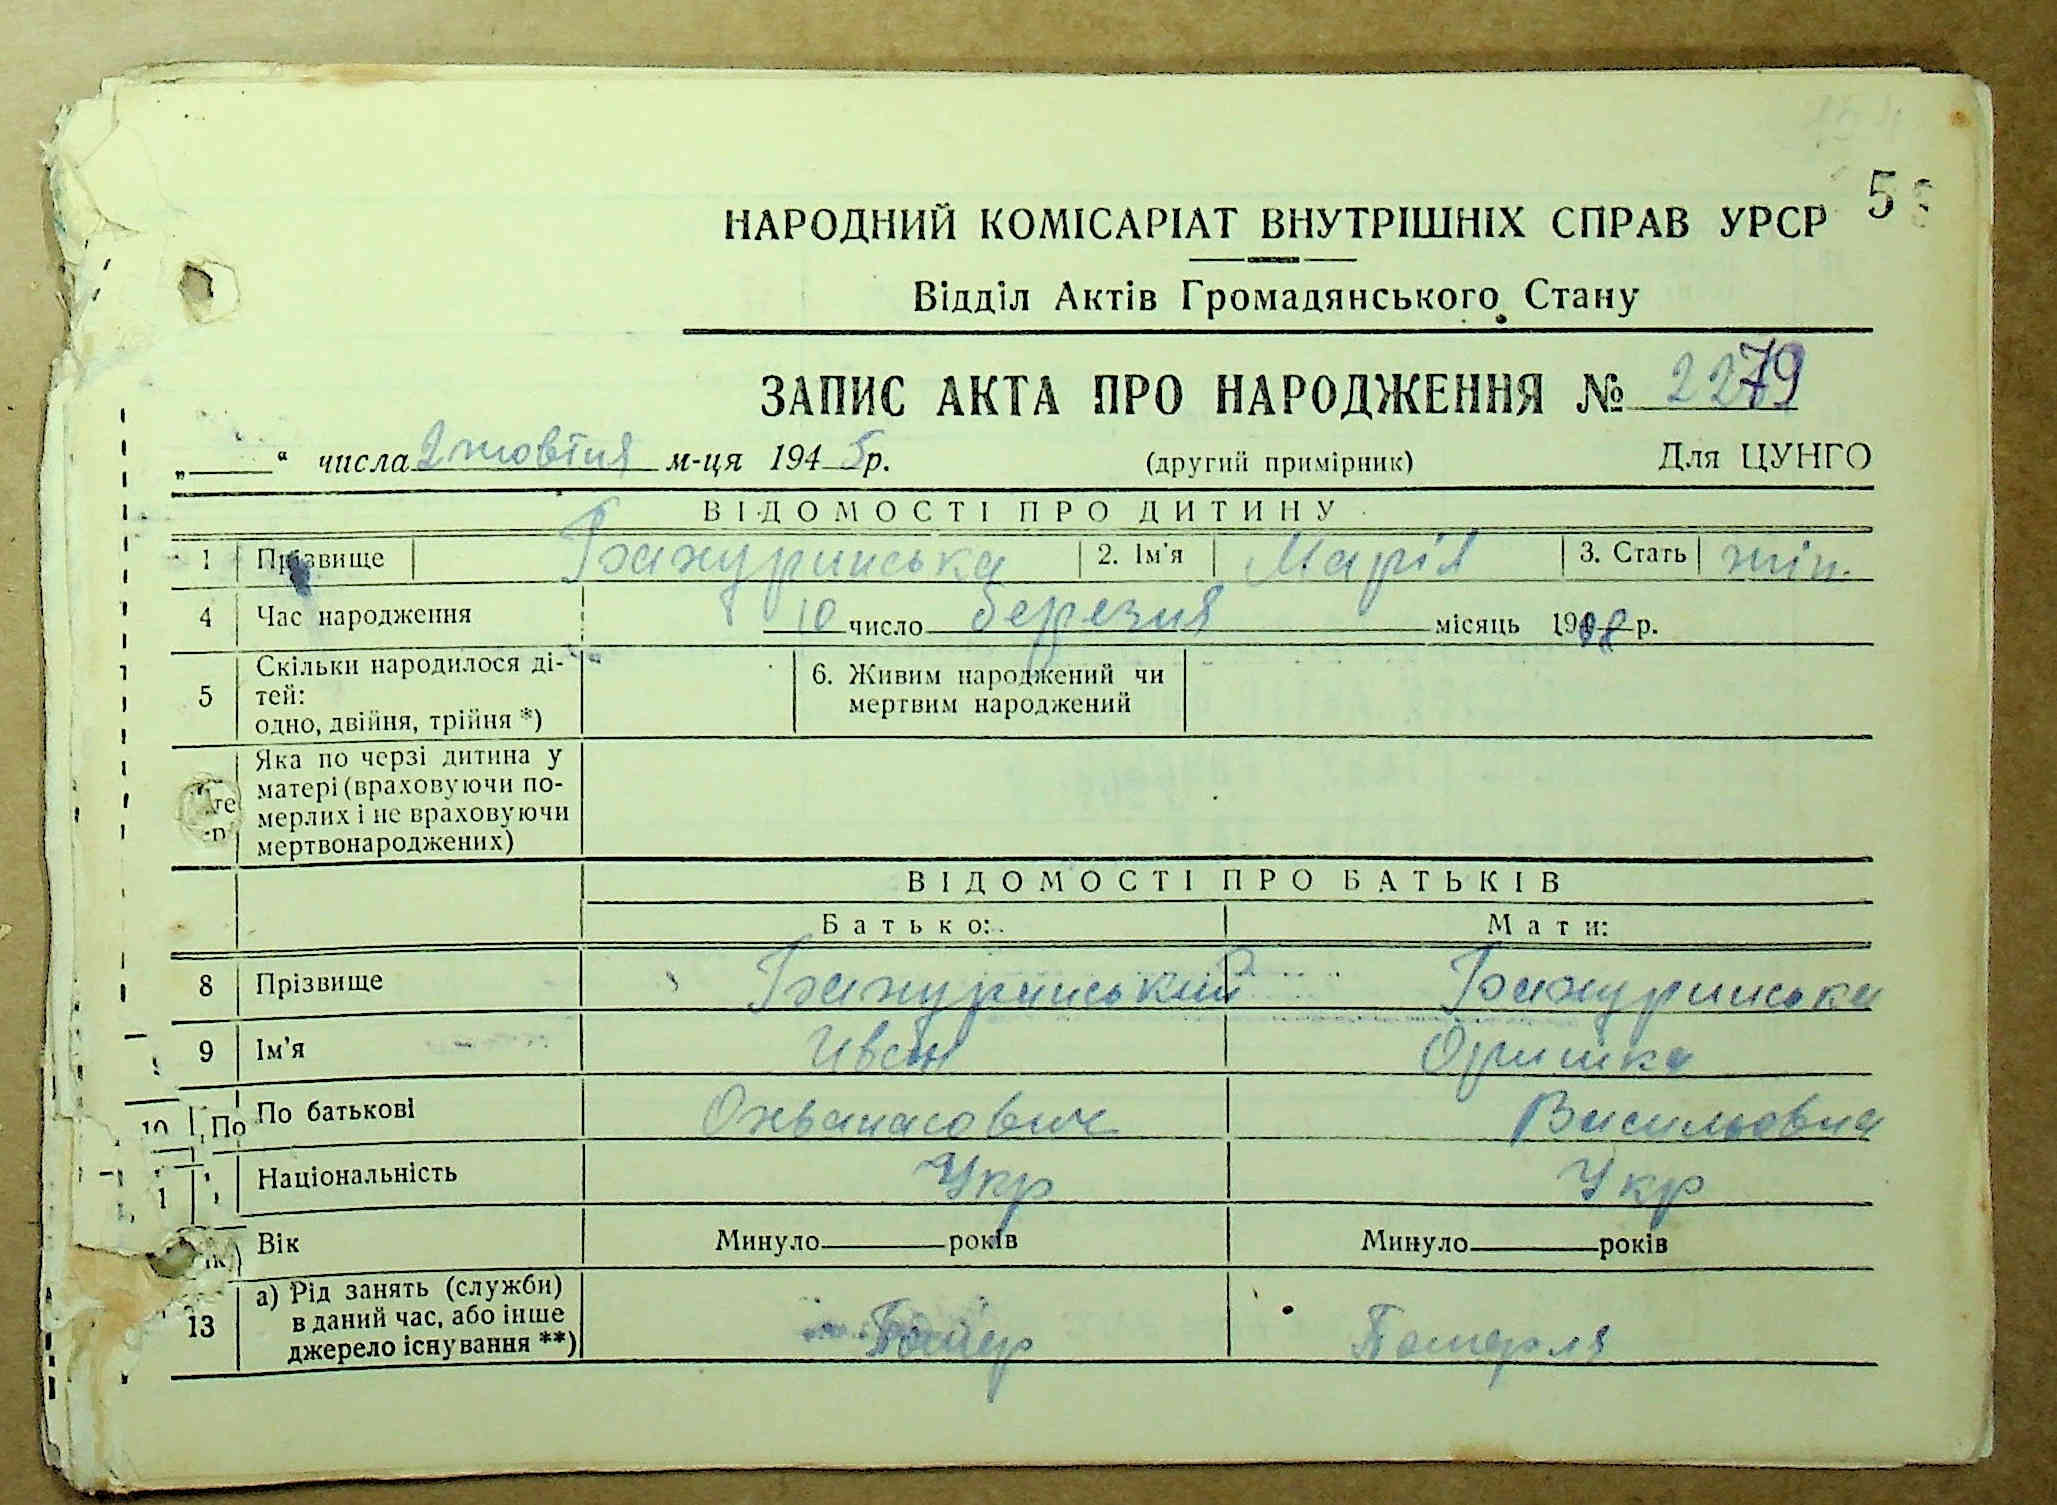 5
НАРОДНИЙ КОМІСАРІАТ ВНУТРІШНІХ СПРАВ УРСР
Відділ Актів Громадянського Стану
ЗАПИС АКТА ПРО НАРОДЖЕННЯ № 2279
„ “ числа 2 жовтня м-ця 1945р. (другий примірник) Для ЦУНГО
ВІДОМОСТІ ПРО ДИТИНУ
1 Прізвище Бажуринська 2. Ім'я Марія 3. Стать жін.
4 Час народження 10 число березня місяць 1908 р.
5 Скільки народилося ді-
тей:
одно, двійня, трійня *)
6. Живим народжений чи
мертвим народжений
Яка по черзі дитина у
матері (враховуючи по-
мерлих і не враховуючи
мертвонароджених)
ВІДОМОСТІ ПРО БАТЬКІВ
Батько: Мати:
8 Прізвище Бажуринський Бажуринська
9 Ім'я Іван Оришка
10 По По батькові Охванасович Васильовна
1 Національність Укр Укр
Вік Минуло років Минуло років
13 а) Рід занять (служби)
в даний час, або інше
джерело існування **)
Помер Померля